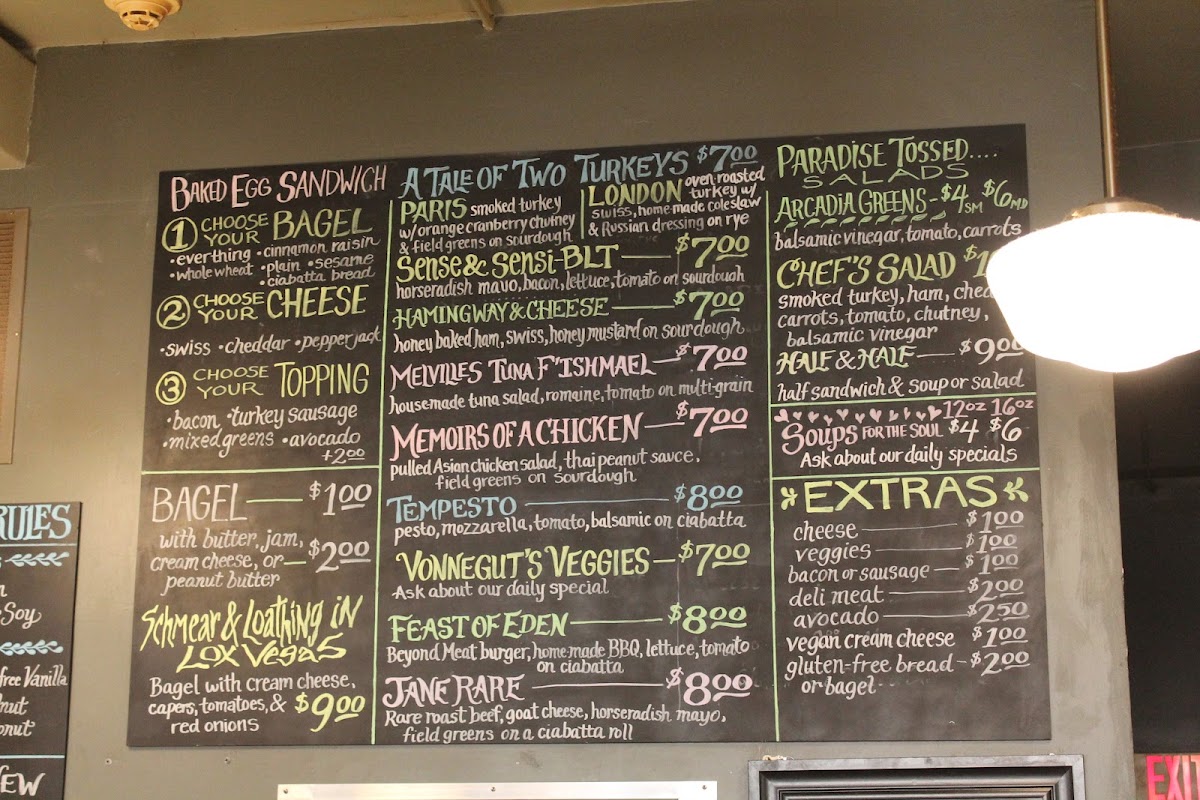 BAKED EGG SANDWICH
1 CHOOSE YOUR BAGEL
• everthing • cinnamon raisin
• whole wheat • plain • sesame
• ciabatta bread
2 CHOOSE YOUR CHEESE
• swiss • cheddar • pepperjack
3 CHOOSE YOUR TOPPING
• bacon • turkey sausage
• mixed greens • avocado
+2.00
BAGEL — $1.00
with butter, jam,
cream cheese, or — $2.00
peanut butter
Schmear & Loathing in
Lox Vegas
Bagel with cream cheese,
capers, tomatoes, & $9.00
red onions
A TALE OF TWO TURKEYS $7.00
PARIS smoked turkey
w/ orange cranberry chutney
& field greens on sourdough
LONDON oven roasted
turkey w/
swiss, home-made coleslaw
& Russian dressing on rye
SENSE & SENSI-BLT — $7.00
horseradish mayo, bacon, lettuce, tomato on sourdough
HAMINGWAY & CHEESE — $7.00
honey baked ham, swiss, honey mustard on sourdough
MELVILLES TUNA F'ISHMAEL — $7.00
house-made tuna salad, romaine, tomato on multi-grain
MEMOIRS OF A CHICKEN — $7.00
pulled Asian chicken salad, thai peanut sauce,
field greens on sourdough
TEMPESTO — $8.00
pesto, mozzarella, tomato, balsamic on ciabatta
VONNEGUT'S VEGGIES — $7.00
Ask about our daily special
FEAST OF EDEN — $8.00
Beyond Meat burger, home-made BBQ, lettuce, tomato
on ciabatta
JANE RARE — $8.00
Rare roast beef, goat cheese, horseradish mayo,
field greens on a ciabatta roll
PARADISE TOSSED....
SALADS
ARCADIA GREENS - $4 SM $6 MD
balsamic vinegar, tomato, carrots
CHEF'S SALAD
smoked turkey, ham,
carrots, tomato, chutney,
balsamic vinegar
HALF & HALF — $9.00
half sandwich & soup or salad
12oz 16oz
Soups FOR THE SOUL $4 $6
Ask about our daily specials
EXTRAS
cheese — $1.00
veggies — $1.00
bacon or sausage — $1.00
deli meat — $2.00
avocado — $2.50
vegan cream cheese $1.00
gluten-free bread - $2.00
or bagel
RULES
Soy
free Vanilla
EXIT